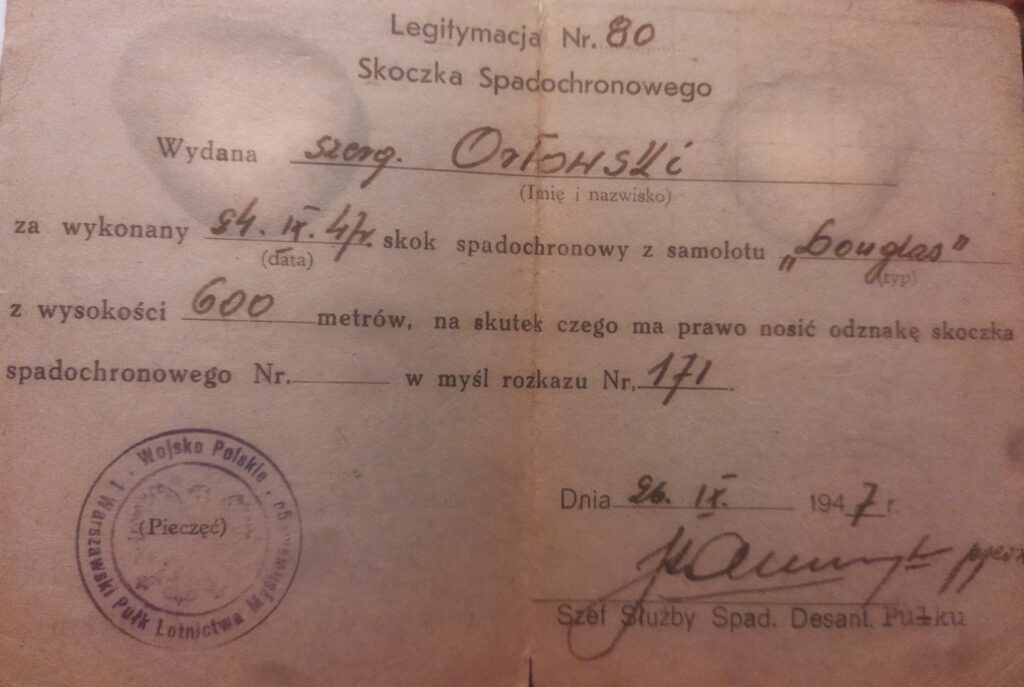 Legitymacja Nr. 80
Skoczka Spadochronowego
Wydana szerg. Orłowski
(Imię i nazwisko)
za wykonany 24. IX. 47r. skok spadochronowy z samolotu „Douglas"
(data) (typ)
z wysokości 600 metrów, na skutek czego ma prawo nosić odznakę skoczka
spadochronowego Nr. w myśl rozkazu Nr. 171.
Wojsko Polskie
1 Warszawski Pułk Lotnictwa
(Pieczęć)
Dnia 26. IX. 1947 r.
Szef Służby Spad. Desant. Pułku